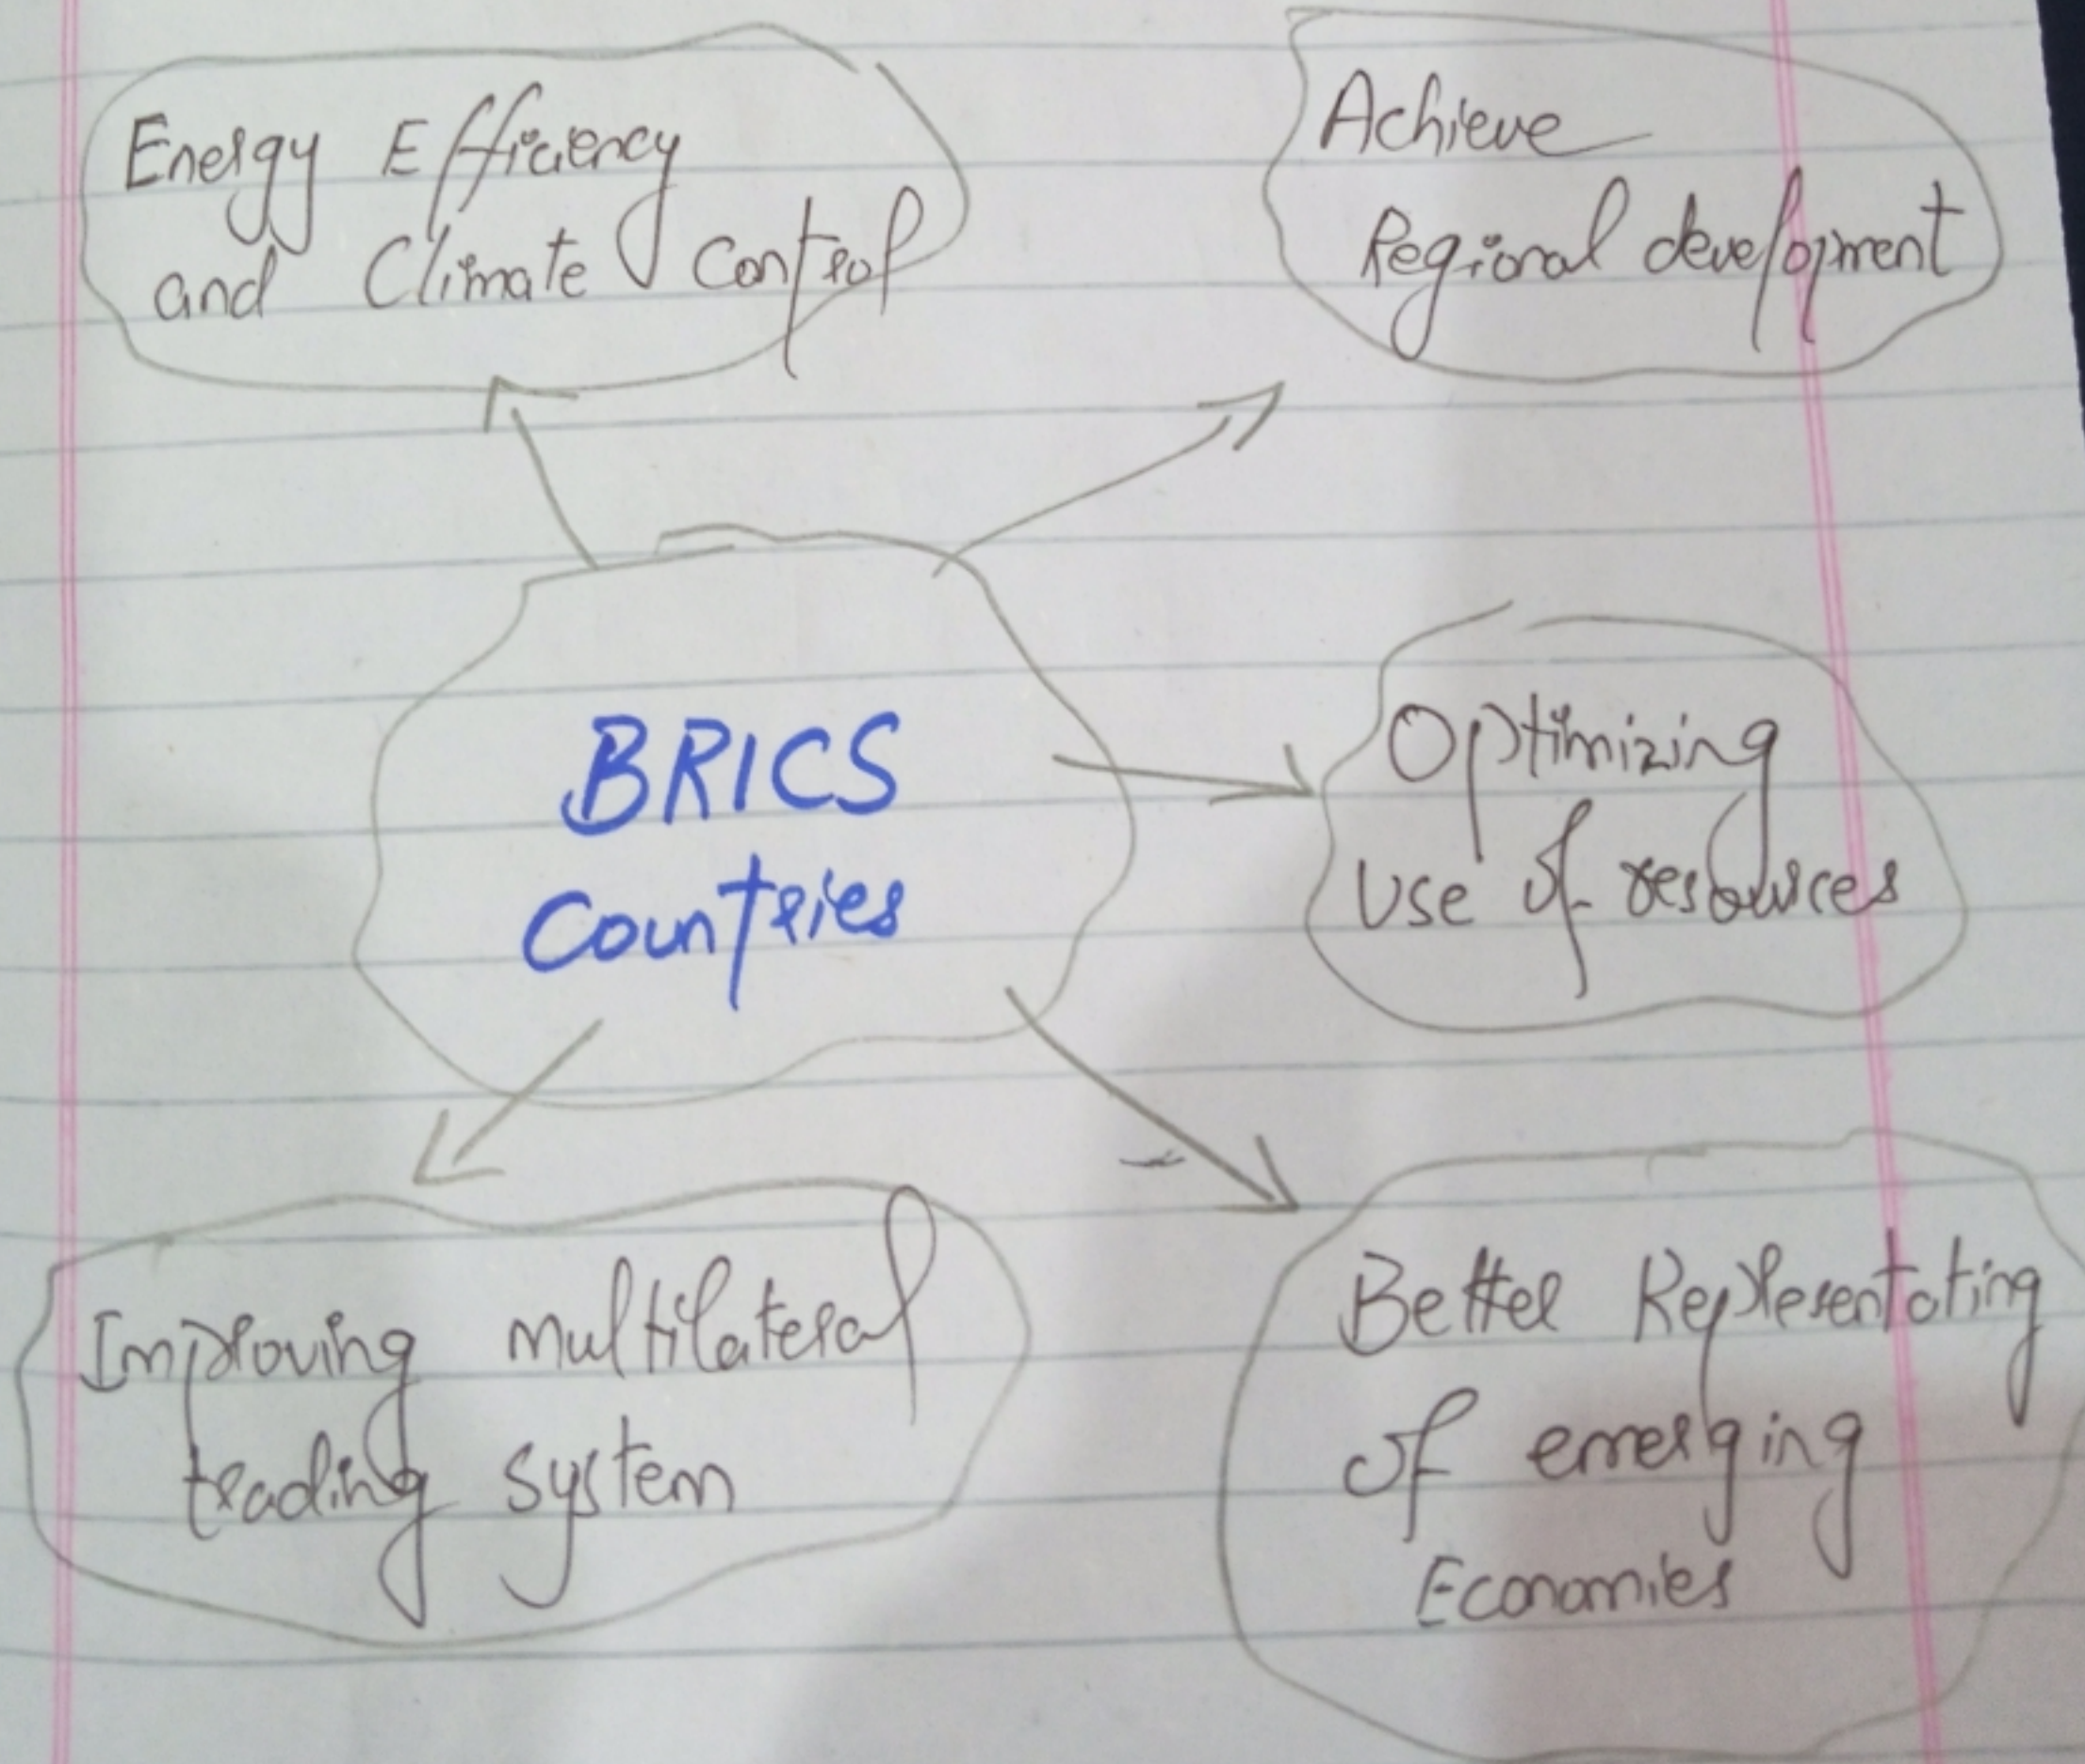 Energy Efficiency
and Climate Control
Achieve
Regional development
BRICS
Countries
Optimizing
Use of resources
Improving multilateral
trading system
Better Representating
of emerging
Economies